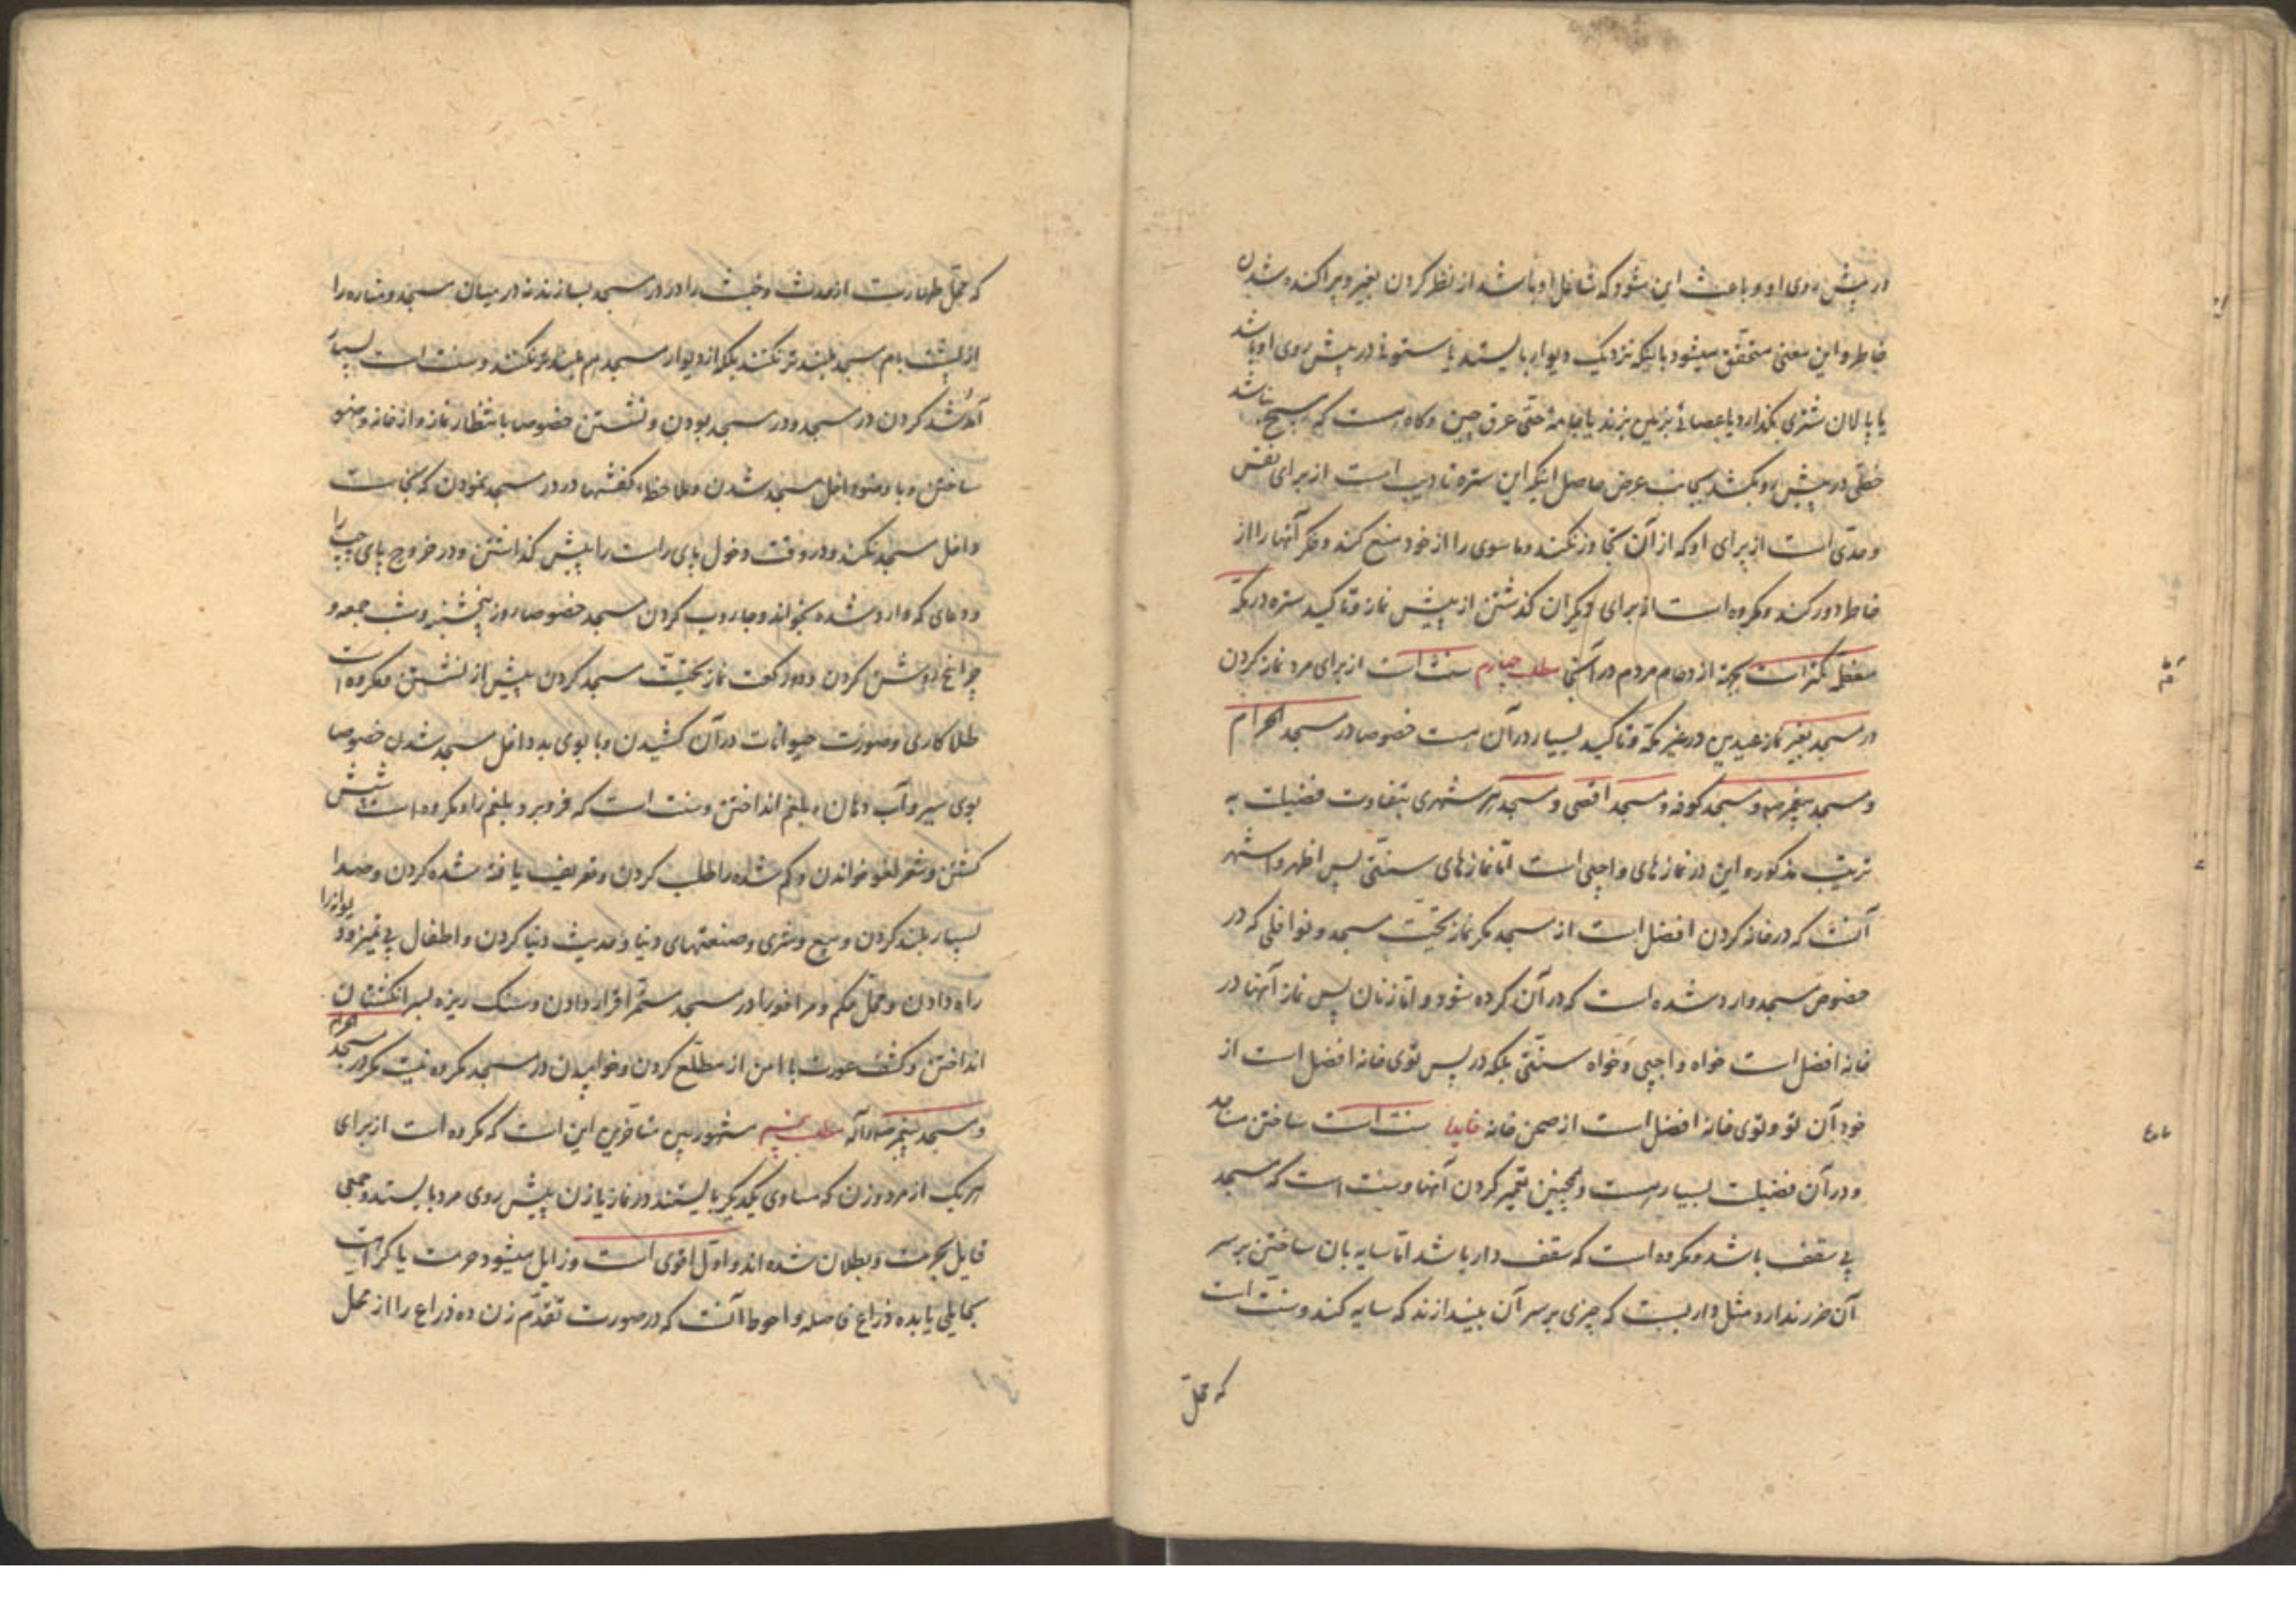 در پیش روی او و باعث این شود که شاغل او باشد از نظر کردن بغیر و پراکنده شدن
خاطر و این معنی متحقق میشود باینکه نزدیک دیوار بایستد یا ستونی در پیش روی او باشد
یا پالان شتری بگذارد یا عصائی بزمین بزند یا جامهٔ حتی عرق چین و کاه هست که هیچ نباشد
خطی در پیش رو بکشد بجانب عرض حاصل اینکه این ستره تادیب است از برای نفس
و حدّی است از برای او که از آن تجاوز نکند و ماسوی را از خود منع کند و فکر آنها را از
خاطر دور کند و مکروه است از برای دیگران گذشتن از پیش نماز و تاکید ستره در مکّه
معظمه کمتر است بجهة ازدحام مردم در آنجا مطلب چهارم سنت است از برای مرد نماز کردن
در مسجد بغیر نماز عیدین در غیر مکّه و تاکید بسیار در آن هست خصوصا در مسجد الحرام
و مسجد پیغمبر ص و مسجد کوفه و مسجد اقصی و مسجد هر شهری بتفاوت فضیلت به
ترتیب مذکور و این در نمازهای واجبی است امّا نمازهای سنّتی پس اظهر و اشهر
آنست که در خانه کردن افضل است از مسجد مگر نماز تحیّت مسجد و نوافلی که در
خصوص مسجد وارد شده است که در آن کرده شود و امّا زنان پس نماز آنها در
خانه افضل است خواه واجبی و خواه سنّتی بلکه در پس توی خانه افضل است از
خود آن تو و توی خانه افضل است از صحن خانه سنت است ساختن مساجد
و در آن فضیلت بسیار هست و همچنین تعمیر کردن آنها و سنت است که مسجد
بی سقف باشد و مکروه است که سقف دار باشد امّا سایه بان ساختن بر سر
آن ضرر ندارد مثل داربست که چیزی بر سر آن بیندازند که سایه کند و سنت است
که محلّ
که محلّ طهارت از حدث و خبث را در در مسجد بسازند نه در میان مسجد و مناره را
از پشت بام مسجد بلندتر نکنند بلکه از دیوار مسجد هم بلندتر نکنند و سنت است بسیار
آمد شد کردن در مسجد و در مسجد بودن و نشستن خصوصا بانتظار نماز و از خانه وضو
ساختن و با وضو داخل مسجد شدن و ملاحظهٔ کفشها در در مسجد نمودن که نجاست
داخل مسجد نکند و در وقت دخول پای راست را پیش گذاشتن و در خروج پای چپ را
و دعای که وارد شده بخواند و جاروب کردن مسجد خصوصا روز پنجشنبه و شب جمعه و
چراغ روشن کردن و دو رکعت نماز تحیّت مسجد کردن پیش از نشستن و مکروه است
طلا کاری و صورت حیوانات در آن کشیدن و با بوی بد داخل مسجد شدن خصوصا
بوی سیر و آب دهان و بلغم انداختن و سنت است که فرو برد بلغم را و مکروه است شپش
کشتن و شعر لغو خواندن و گم شده را طلب کردن و تعریف یافته شده کردن و صدا
بسیار بلند کردن و بیع و شری و صنعتهای دنیا و حدیث دنیا کردن و اطفال بی تمیز و دیوانه را
راه دادن و محلّ حکم و مرافعه را در مسجد مستمر قرار دادن و سنگ ریزه بسر انگشتان
انداختن و کشف عورت با امن از مطلّع کردن و خوابیدن در مسجد مکروه نیست مگر در مسجد الحرام
و مسجد پیغمبر ص و آله مطلب پنجم مشهور بین متأخرین این است که مکروه است از برای
هر یک از مرد و زن که مساوی یکدیگر بایستند در نماز یا زن پیش روی مرد بایستد و جمعی
قایل بحرمت و بطلان شده اند و اوّل اقوی است و زایل میشود حرمت یا کراهت
بحایلی یا بده ذراع فاصله و احوط آنست که در صورت تقدّم زن ده ذراع را از محل